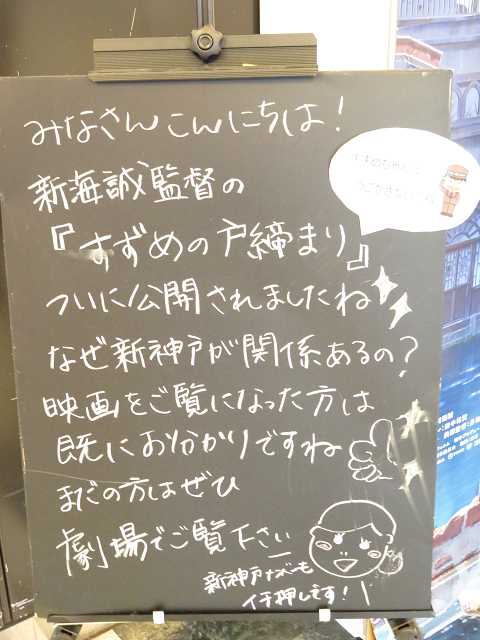 みなさんこんにちは!
新海誠監督の
『すずめの戸締まり』
ついに公開されましたね
なぜ新神戸が関係あるの?
映画をご覧になった方は
既にお分かりですね
まだの方はぜひ
劇場でご覧下さい
新神戸
イチ押しです!